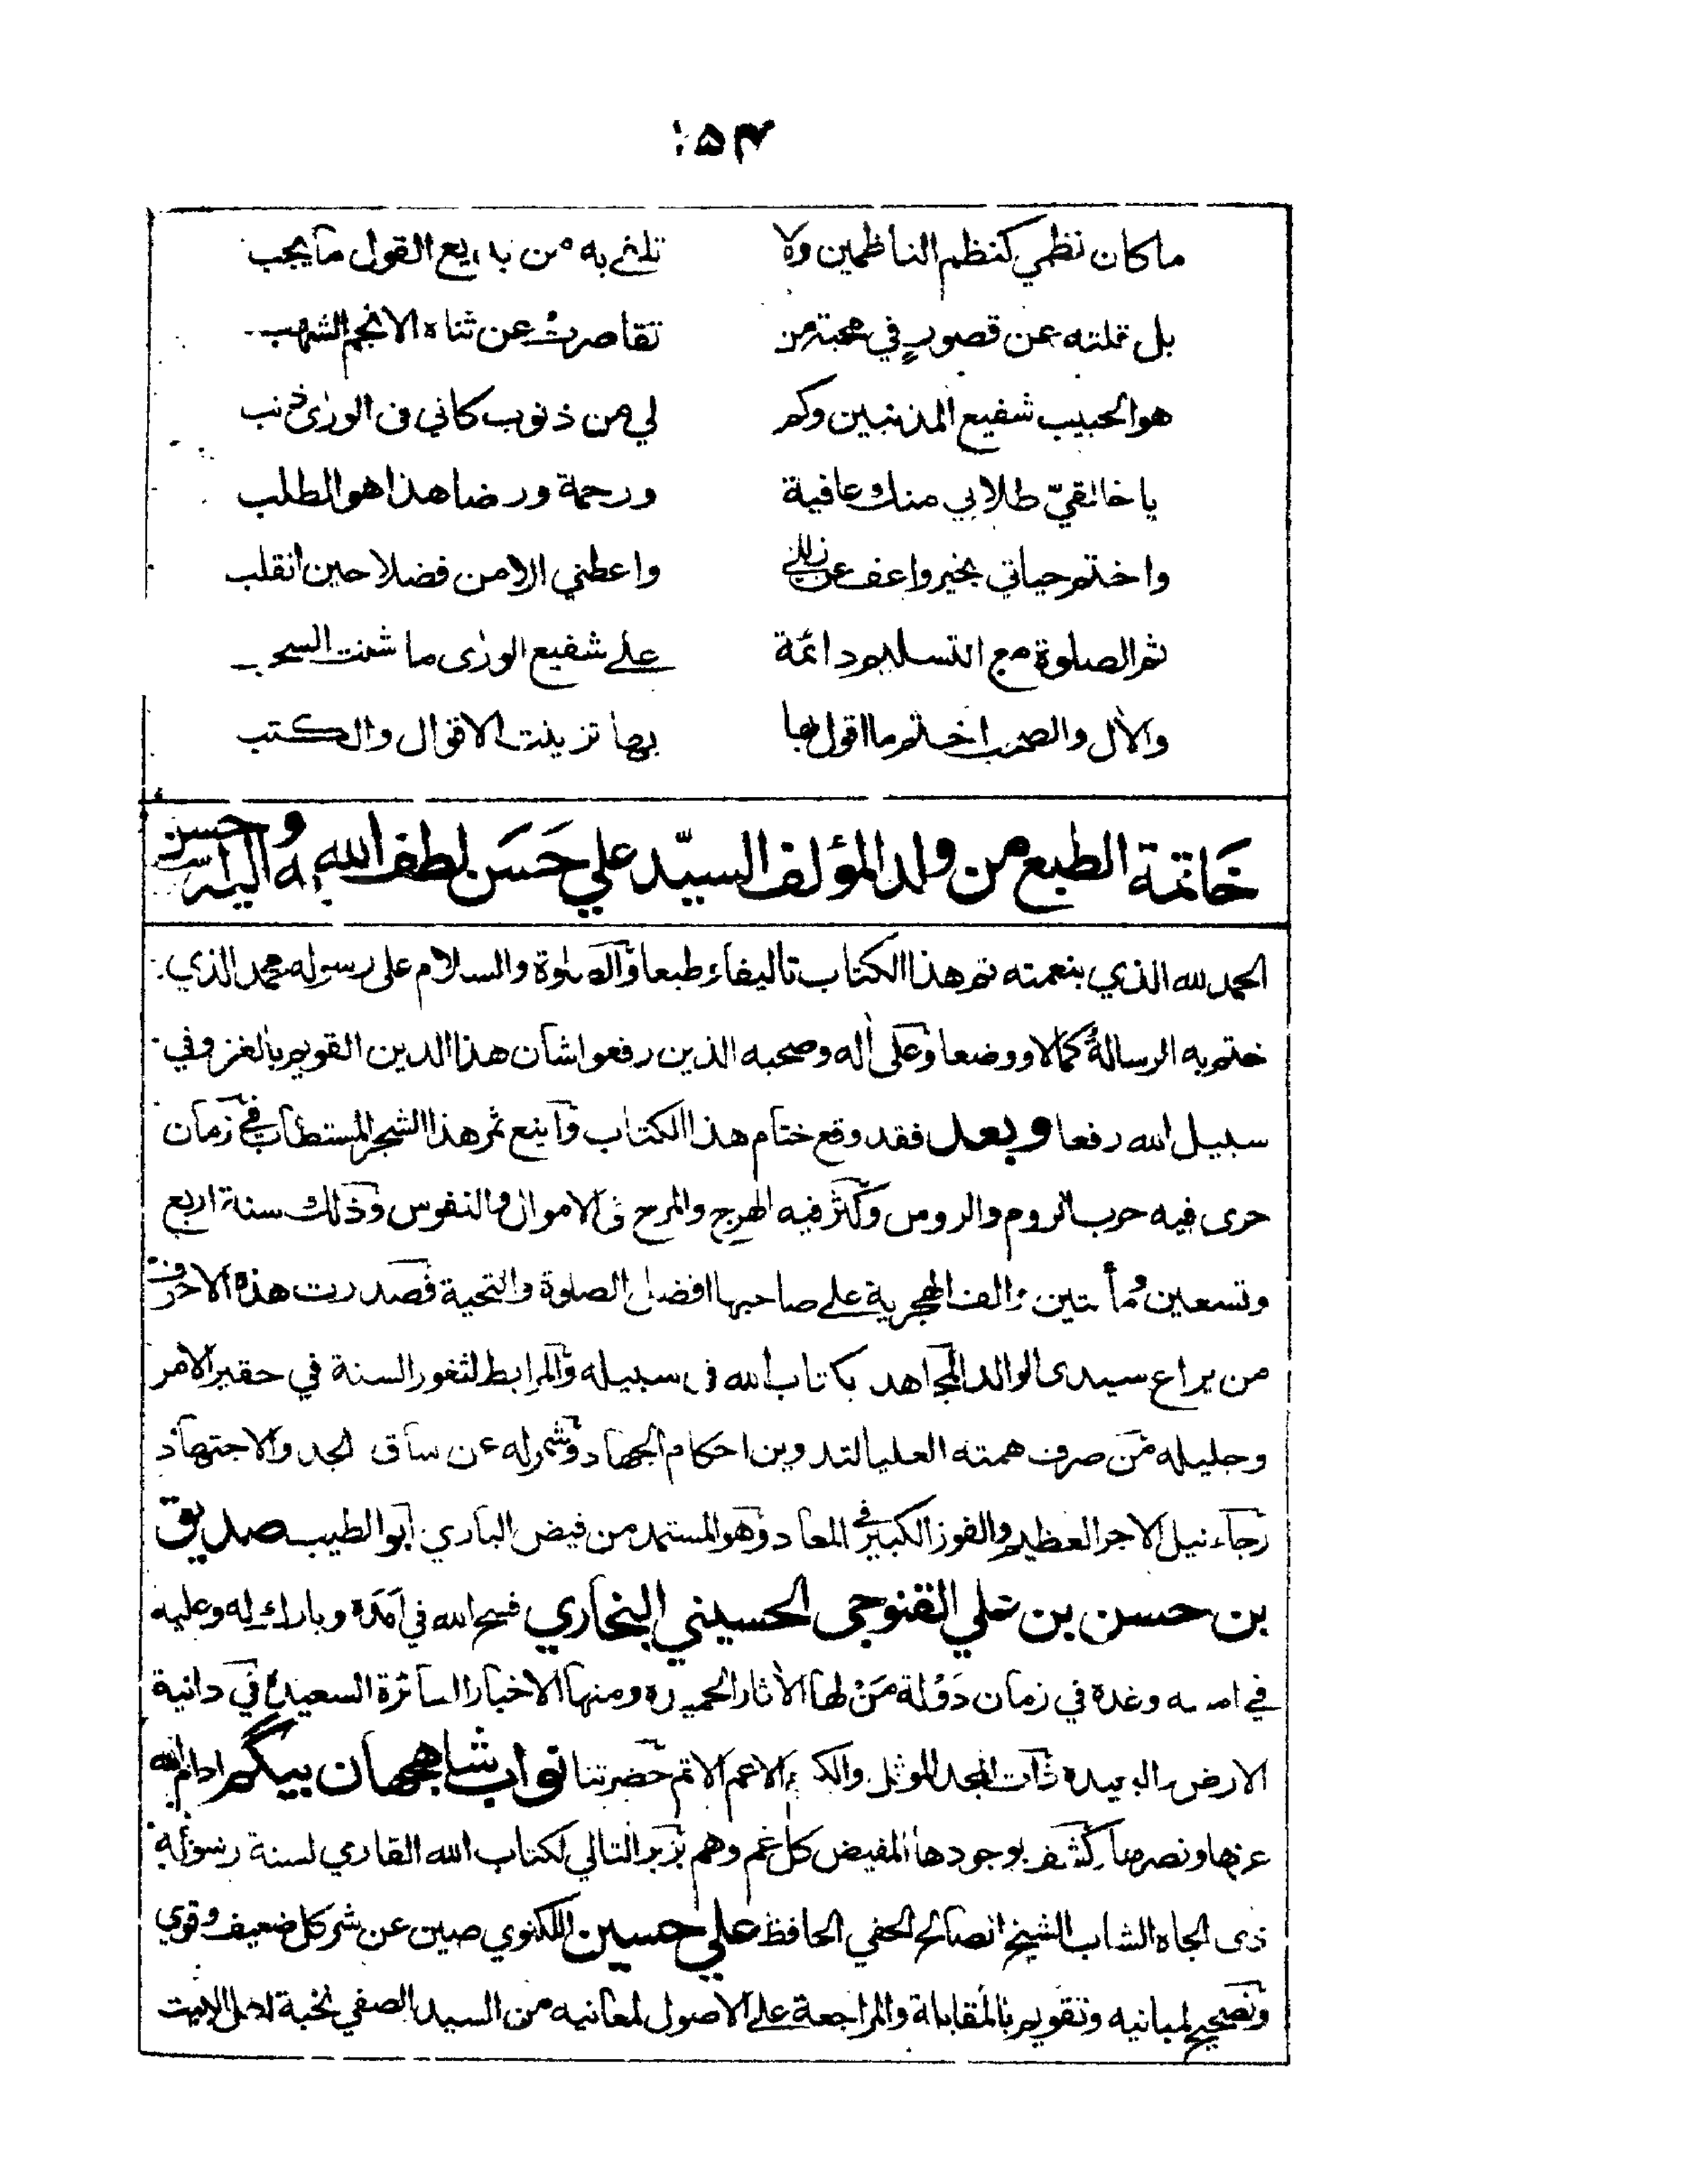 ١٥٤
ما كان نظمي كنظم الناظمين ولا تلفي به من بديع القول ما يجب
بل قلته عن قصورٍ في محبة من تقاصرت عن ثناه الانجم الشهب
هو الحبيب شفيع المذنبين وكم لي من ذنوب كاني في الورى ذنب
يا خالقي طلابي منك عافية ورحمة ورضا هذا هو الطلب
واختم حياتي بخير واعف عن زللي واعطني الامن فضلا حين انقلب
ثم الصلوة مع التسليم دائمة على شفيع الورى ما شنت السحب
والآل والصحب اختم ما اقول بها بها تزينت الاقوال والكتب
خَاتمة الطبع من ولد المؤلف السيّد علي حَسَن لطف الله به واحسن اليه
الحمد لله الذي بنعمته تم هذا الكتاب تاليفا وطبعا والصلوة والسلام على رسوله محمد الذي
ختم به الرسالة كمالا ووضعا وعلى أله وصحبه الذين رفعوا شان هذا الدين القويم بالغزو في
سبيل الله رفعا وبعد فقد وقع ختام هذا الكتاب واينع ثمر هذا الشجر المستطاب في زمان
جرى فيه حرب الروم والروس وكثر فيه الهرج والمرج في الاموال والنفوس وذلك سنة اربع
وتسعين ومأتين والف الهجرية على صاحبها افضل الصلوة والتحية فصدرت هذه الاحرف
من يراع سيدى الوالد المجاهد بكتاب الله في سبيله والمرابط لثغور السنة في حقير الامر
وجليله من صرف همته العليا لتدوين احكام الجهاد وشمر له عن ساق الجد والاجتهاد
رجاء نيل الاجر العظيم والفوز الكبير في المعاد وهو المستمد من فيض الباري ابو الطيب صديق
بن حسن بن علي القنوجى الحسيني البخاري فسح الله في امَدَه وبارك له وعليه
في امسه وغده في زمان دَوْلة مَنْ لها الأثار الحميده ومنها الاخبار السائرة السعيدة في دانية
الارض والبعيده ذات المجد الموثل والكرم الاعم الاتم حضرتنا نواب شاهجهان بيكم ادام الله
عزها ونصرها وكشف بوجودها المفيض كل غم وهم بزبر التالي لكتاب الله القاري لسنة رسوله
ذى الجاه الشاب الشيخ الصالح الحفي الحافظ علي حسين اللكنوي صين عن شر كل ضعيف وقوي
وتصحيح لمبانيه وتقويم بالمقابلة والمراجعة على الاصول لمعانيه من السيد الصفي نخبة اهل البيت